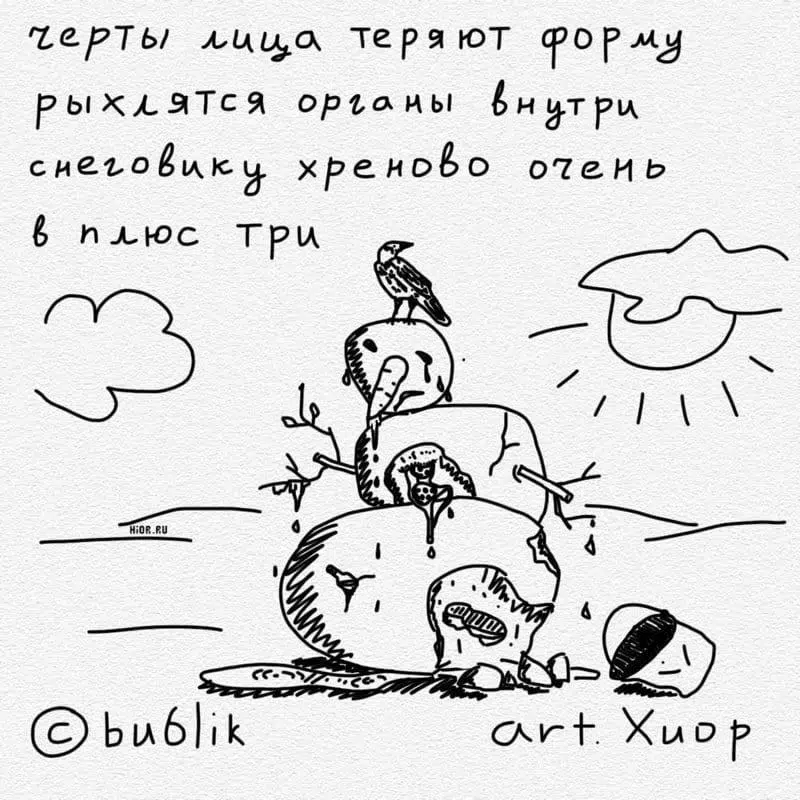 черты лица теряют форму
рыхлятся органы внутри
снеговику хреново очень
в плюс три
HiOR.RU
© bublik
art. Хиор